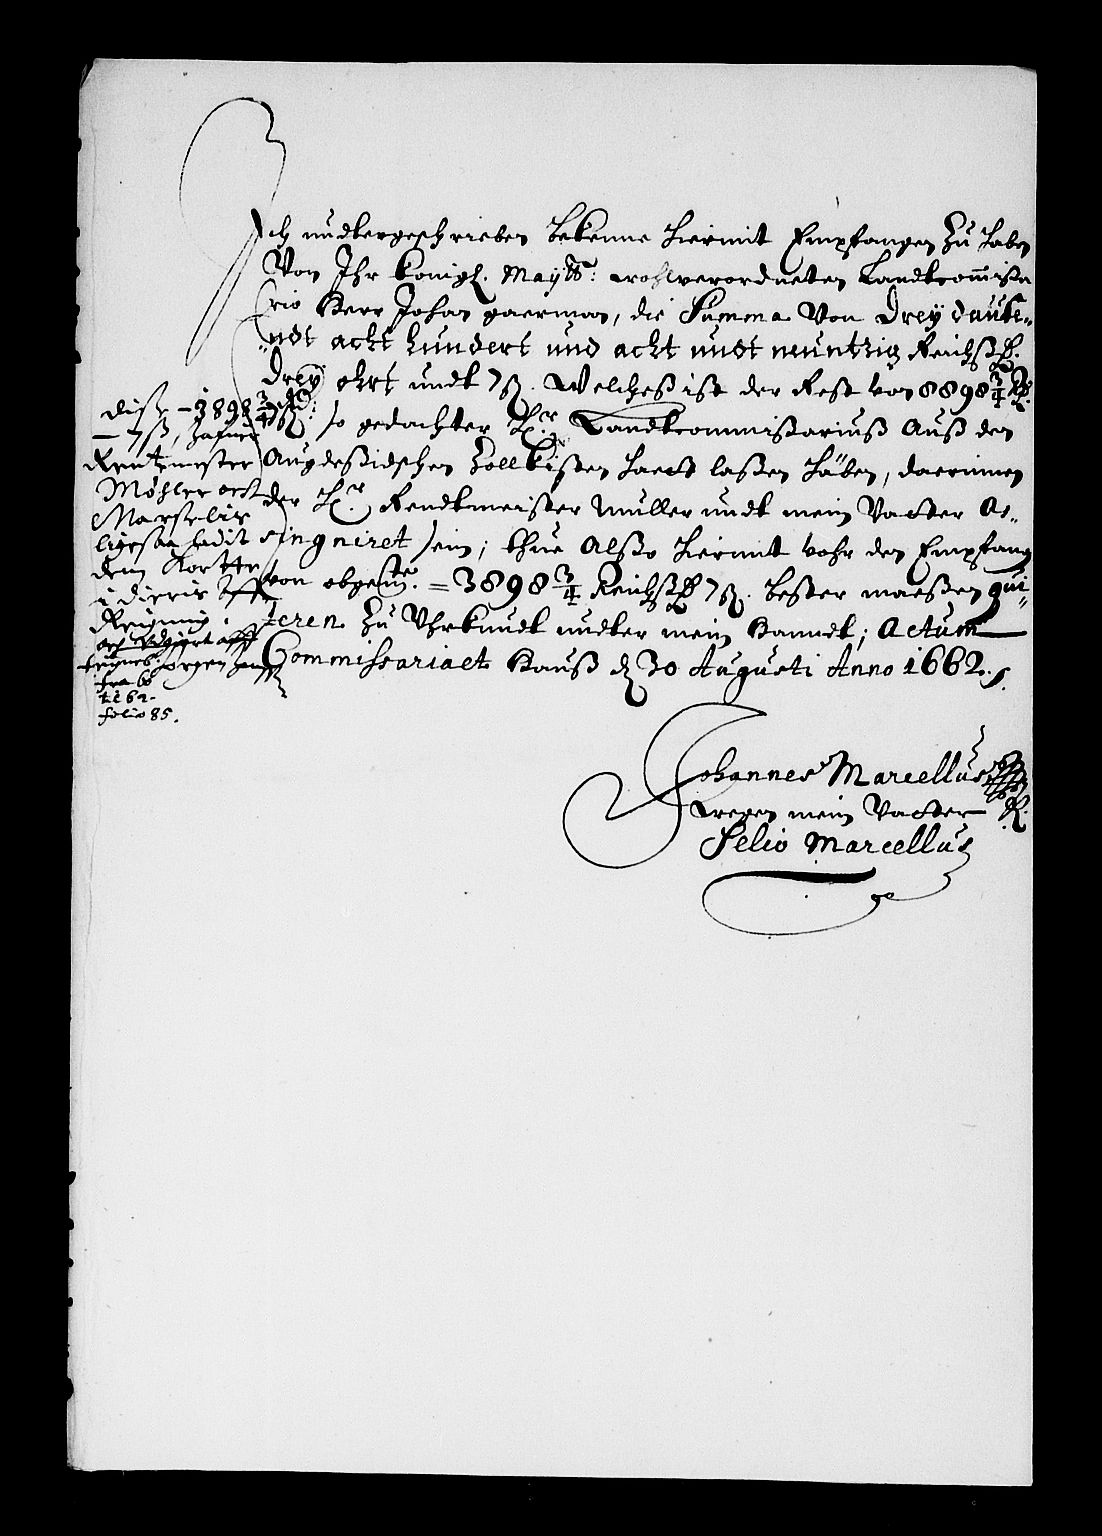 Ich undtergeschrieben bekenne hiermit Empfangen zu haben
Von Ihr Königl. Maytt: wohlverordneten Landtcommissa
rio Herr Johan gaerman, die Summa Von Drey dauße„
„ndt acht hundert und acht undt neuntzig Reichß
Drey ohrt undt 7ß. Welcheß ist der Rest von 8898 3/4
so gedachter H.r Landtcommissariuß Auß den
Zollkisten laßen häben, daerinnen
der H.r Rendtmeister Müller undt mein Vatter As„
singniret sein; thue Alßo hiermit vohr den Empfang
von obgeste = 3898 3/4 Reichß 7ß. bester maeßen qui„
teren Zu Uhrkundt undter mein Handt; Actum
Commissariaet Hauß d 30 Augusti Anno 1662.
Johannes Marcellus
wegen mein Vatter
Selio Marcellus
diß - 3898 3/4
- 7ß, hafuer
Rentemester
Möhler och
Marselis
dem
i dieris
Regning
Jørgen
1662.
folio 85.